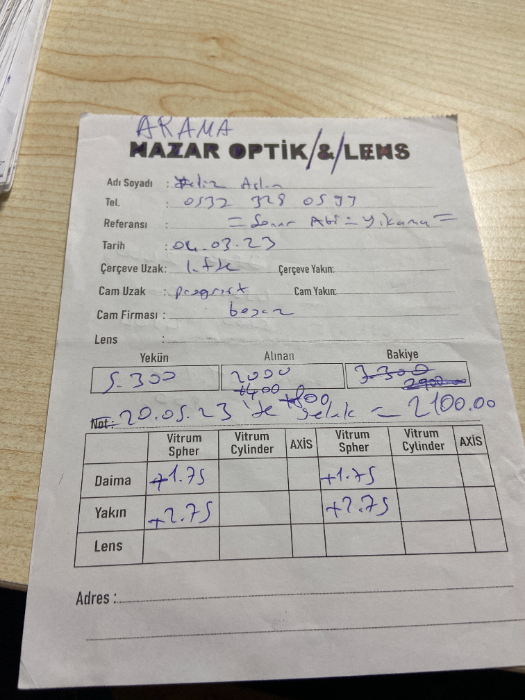 ARAMA
NAZAR OPTİK/&/LENS
Adı Soyadı : Aslan
Tel. : 0532 328 05
Referansı : = Abi =
Tarih : 04.03.23
Çerçeve Uzak: Çerçeve Yakın:
Cam Uzak : Cam Yakın:
Cam Firması :
Lens :
Yekün Alınan Bakiye
5.300 2000 3.300
+400 2900
+800
Not: 20.05.23 'te = 2100.00
Vitrum Spher Vitrum Cylinder AXİS Vitrum Spher Vitrum Cylinder AXİS
Daima +1.75 +1.75
Yakın +2.75 +2.75
Lens
Adres :